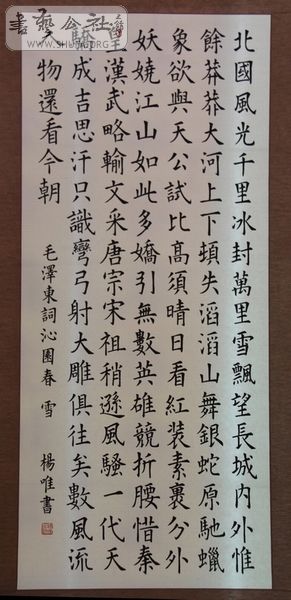 北國風光千里冰封萬里雪飄望長城内外惟
餘莽莽大河上下頓失滔滔山舞銀蛇原馳蠟
象欲與天公試比高須晴日看紅装素裹分外
妖嬈江山如此多嬌引無數英雄競折腰惜秦
皇漢武略輸文采唐宗宋祖稍遜風騷一代天
驕成吉思汗只識彎弓射大雕俱往矣數風流
物還看今朝
毛澤東詞沁園春 雪 楊唯書